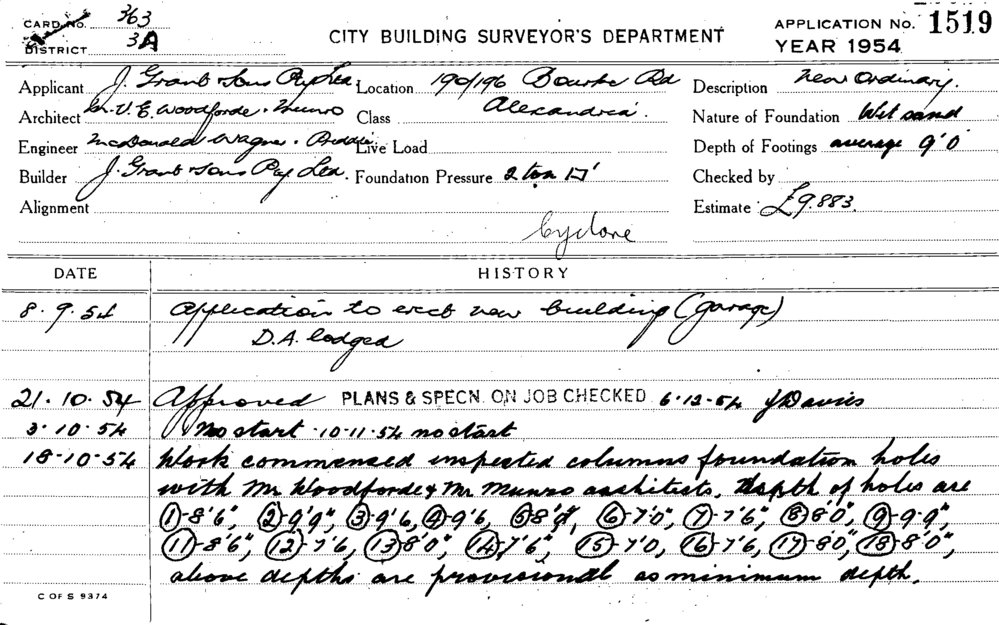 CARD No. 363
DISTRICT 3A
CITY BUILDING SURVEYOR'S DEPARTMENT
APPLICATION No. 1519
YEAR 1954
Applicant J. Grant & Sons Pty Ltd Location 190/196 Bourke Rd Description New Ordinary.
Architect V. E. Woodforde & Munro Class Alexandria. Nature of Foundation Wet sand
Engineer McDonald Wagner & Priddle Live Load Depth of Footings average 9'0"
Builder J. Grant & Sons Pty Ltd. Foundation Pressure 2 ton □' Checked by
Alignment Estimate £9.883.
Cyclone
DATE HISTORY
8.9.54 Application to erect new building (garage)
D.A. lodged
21.10.54 Approved PLANS & SPECN. ON JOB CHECKED 6.12.54 J Davies
3.10.54 No start 10-11-54 no start
18-10-54 Work commensed inspected columns foundation holes
with Mr Woodforde & Mr Munro architects. Depth of holes are
①-8'6", ②-9'9", ③-9'6, ④-9'6, ⑤8'9", ⑥-7'0", ⑦-7'6", ⑧-8'0", ⑨-9-9",
⑪-8'6", ⑫-7'6, ⑬-8'0", ⑭-7'6", ⑮-7'0, ⑯-7'6, ⑰-8'0", ⑱-8'0",
above depths are provisional as minimum depth.
C OF S 9374